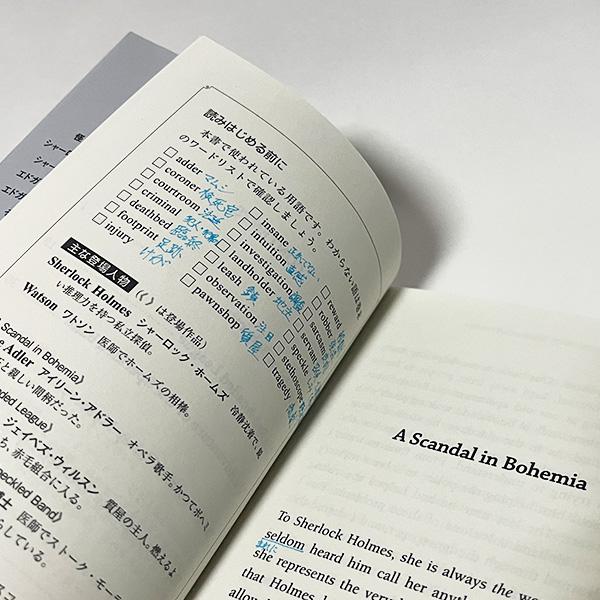 読みはじめる前に
本書で使われている用語です。わからない語は巻末
のワードリストで確認しましょう。
□ adder マムシ
□ coroner 検死官
□ courtroom 法廷
□ criminal
□ deathbed 臨終
□ footprint 足跡
□ injury けが
□ insane 正気でない
□ intuition 直感
□ investigation 調査
□ landholder 地主
□ leash 鎖
□ observation
□ pawnshop 質屋
□ reward
□ robber
□ sarcasm
□ servant
□ speckle
□ stethoscope
□ tragedy
主な登場人物 (《 》は登場作品)
Sherlock Holmes シャーロック・ホームズ 冷静沈着で、鋭
い推理力を持つ私立探偵。
Watson ワトソン 医師でホームズの相棒。
Scandal in Bohemia》
Adler アイリーン・アドラー オペラ歌手。かつてボヘミ
と親しい間柄だった。
League》
ジェイベズ・ウィルスン 質屋の主人。燃えるよ
ち、赤毛組合に入る。
Speckled Band》
医師でストーク・モー
らしている。
シャーロ
シャ
エドガ
A Scandal in Bohemia
To Sherlock Holmes, she is always the
seldom heard him call her
まれに
she represents the very
that Holmes